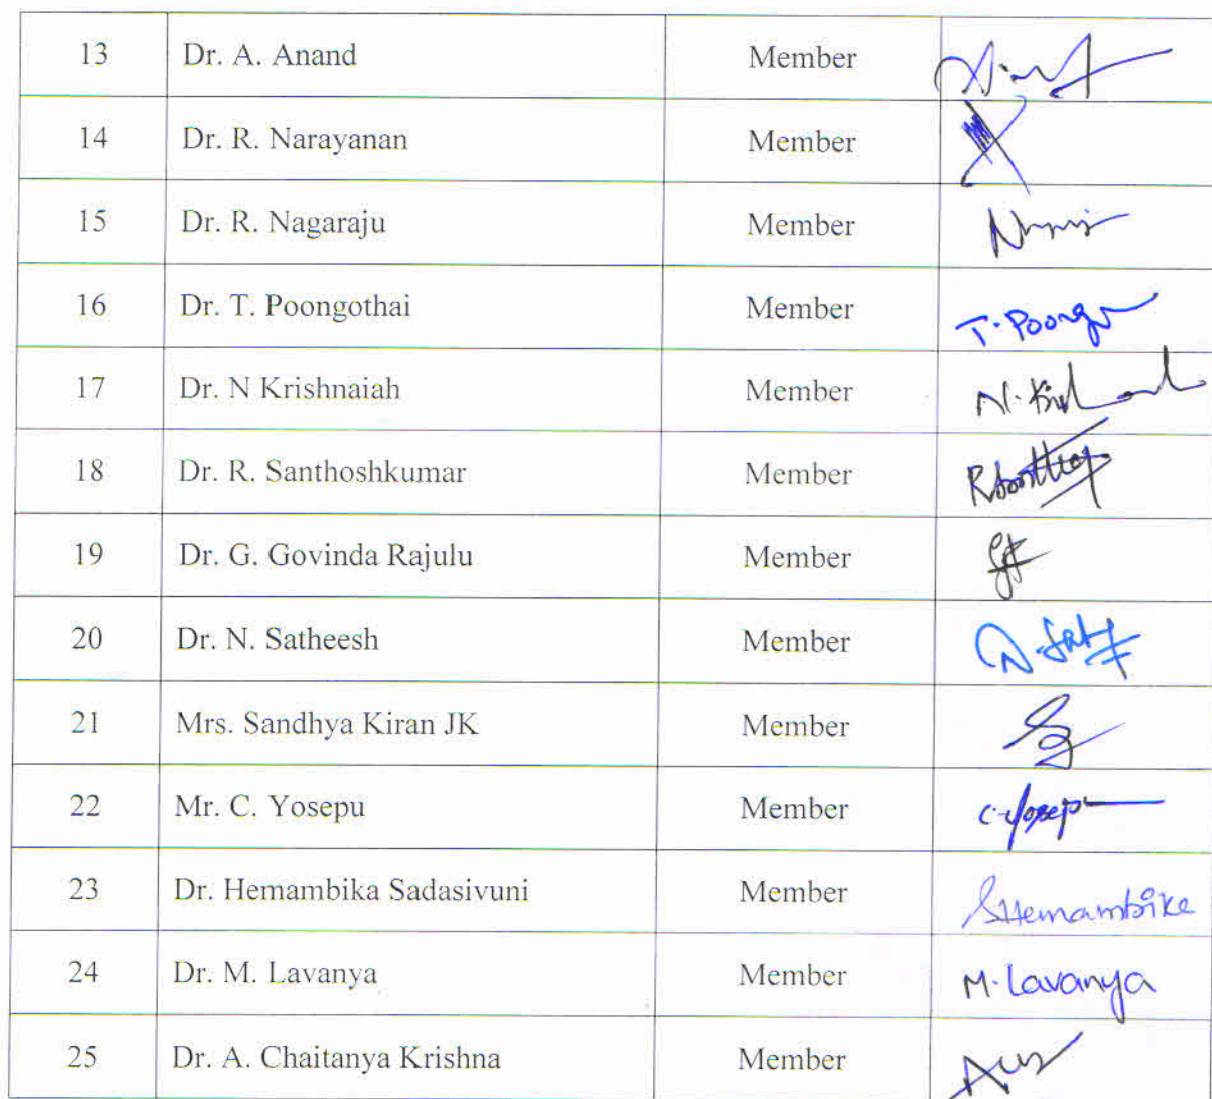 13 Dr. A. Anand Member
14 Dr. R. Narayanan Member
15 Dr. R. Nagaraju Member
16 Dr. T. Poongothai Member T. Poongo
17 Dr. N Krishnaiah Member
18 Dr. R. Santhoshkumar Member
19 Dr. G. Govinda Rajulu Member
20 Dr. N. Satheesh Member
21 Mrs. Sandhya Kiran JK Member
22 Mr. C. Yosepu Member C. Yosepu
23 Dr. Hemambika Sadasivuni Member SHemambike
24 Dr. M. Lavanya Member M. Lavanya
25 Dr. A. Chaitanya Krishna Member